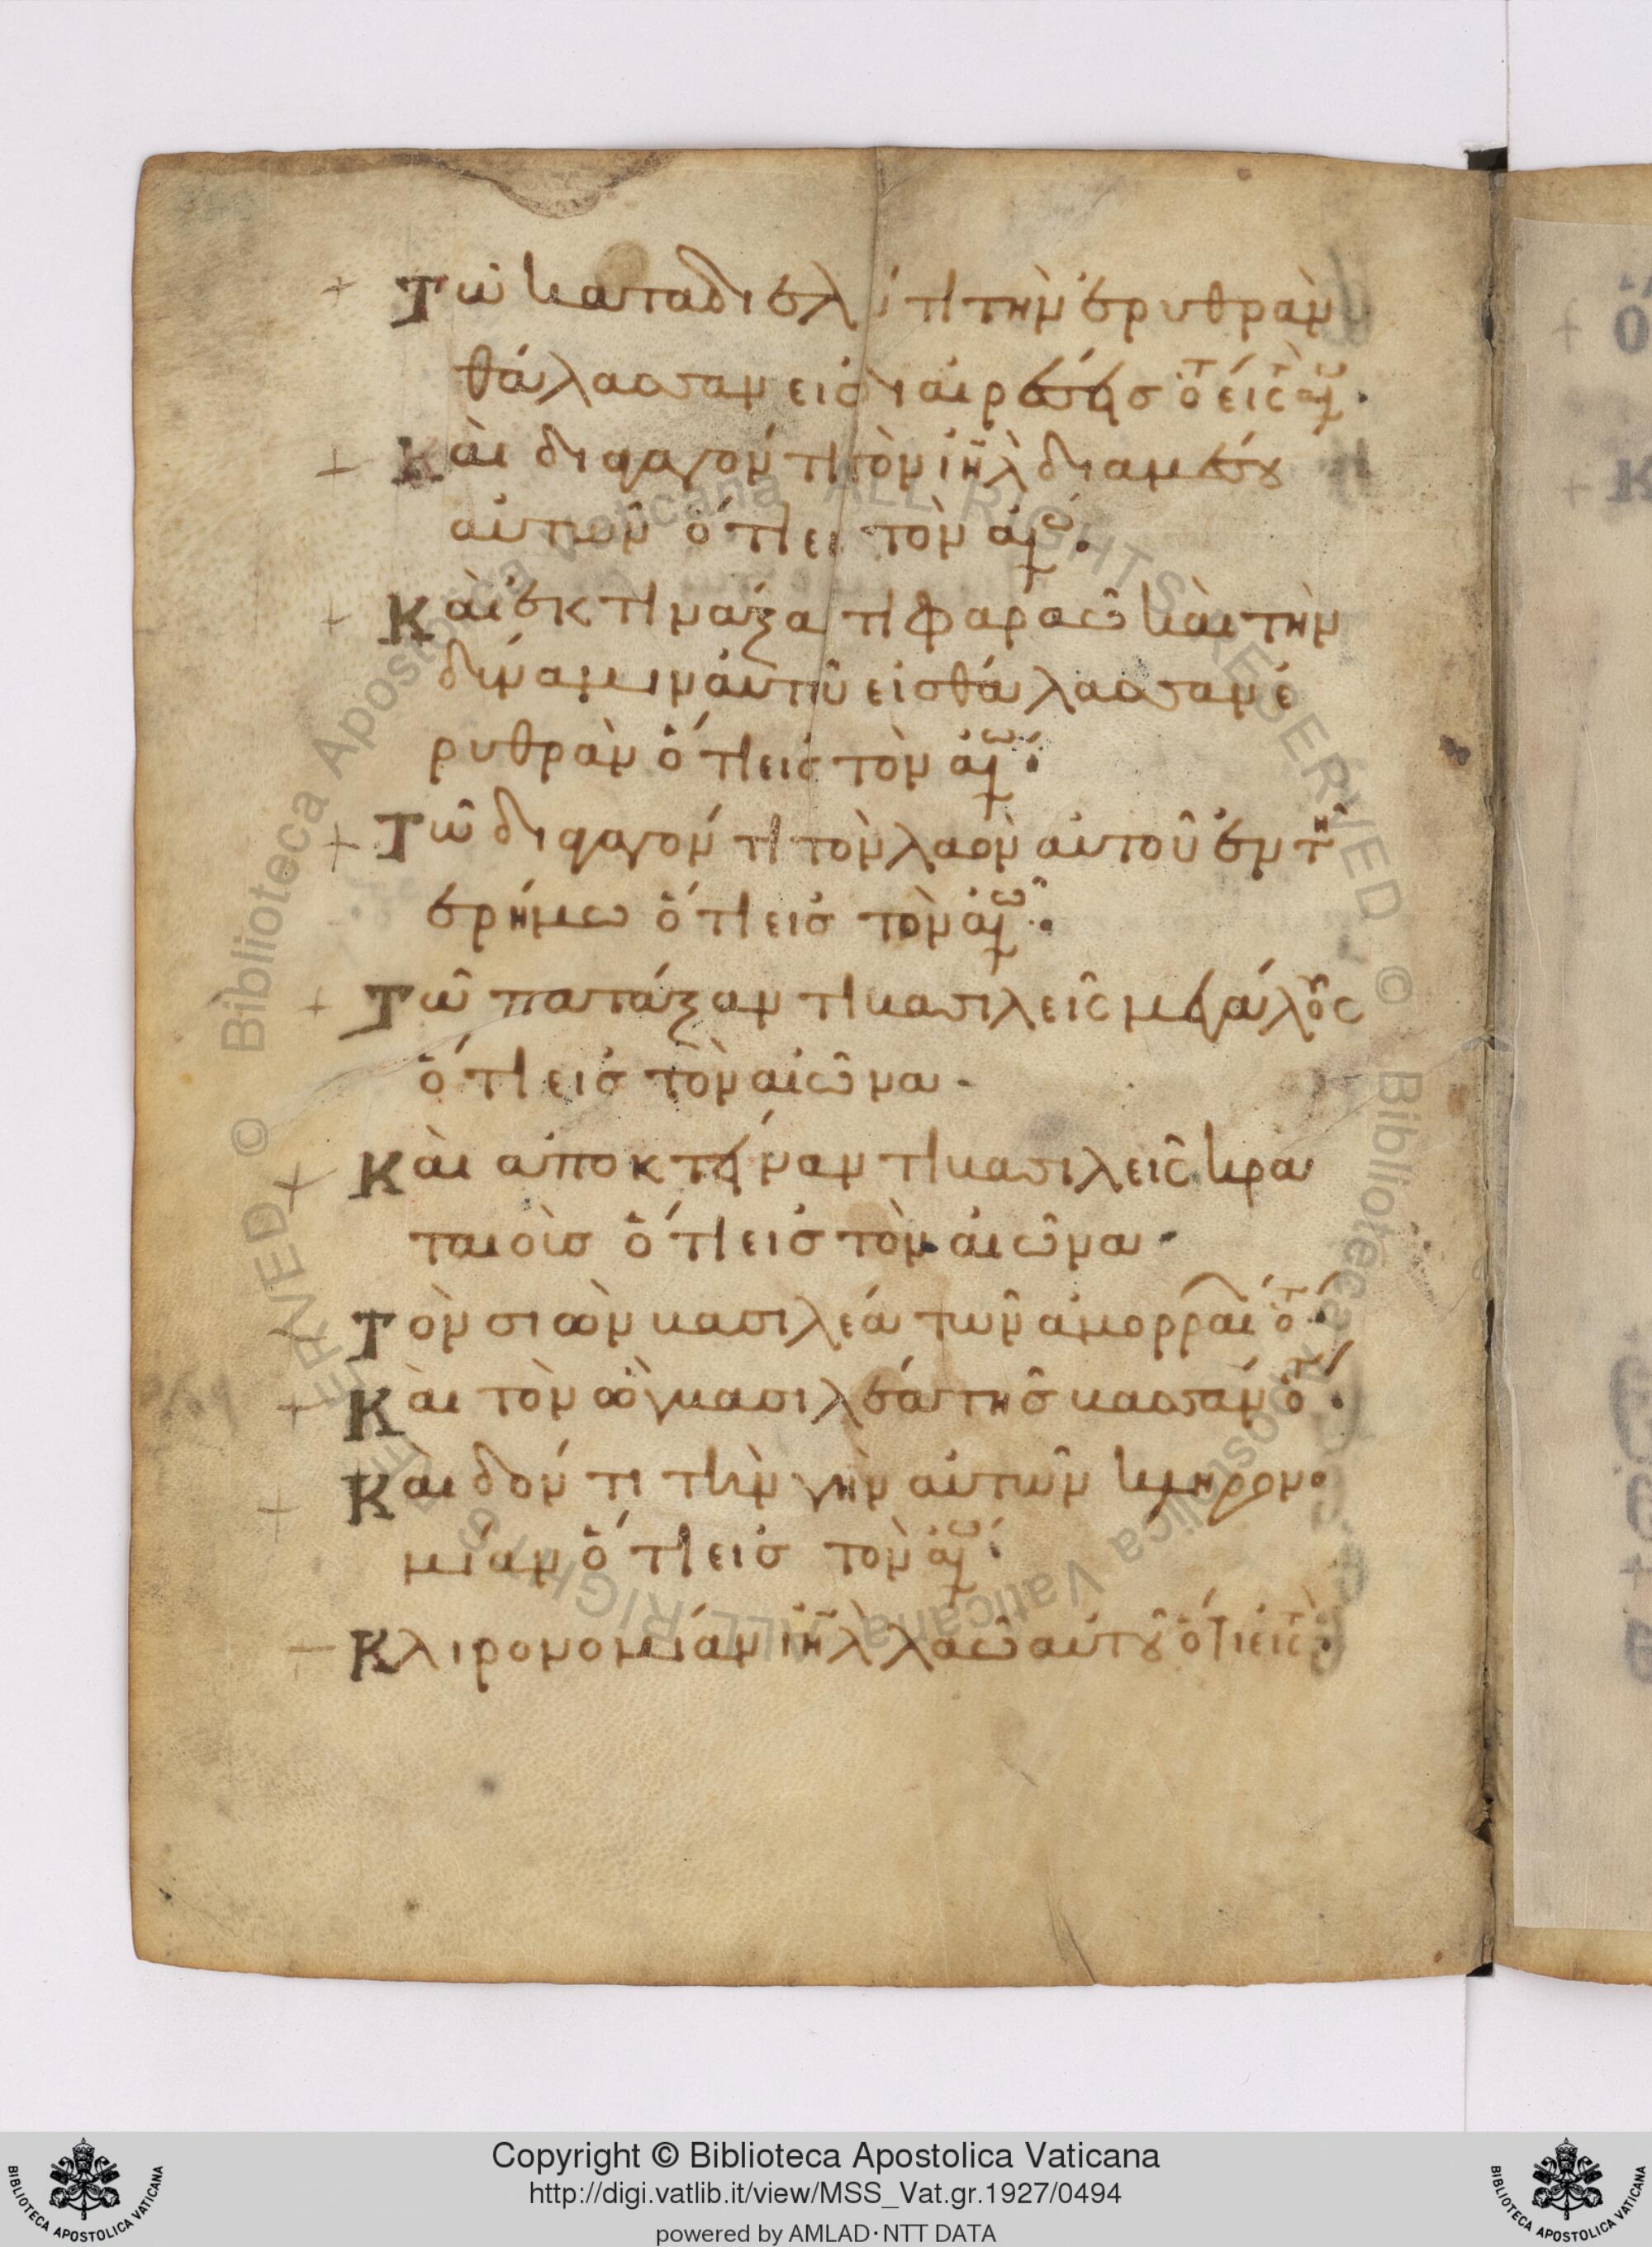 Τῶ καταδιελ ό τι τὴν ἐρυθρὰν
θάλασσαν εἰσ διαιρέσεισ ὅτ εἰς τ αἰῶ.
Καὶ διαγαγόντι τὸν ιη̃λ διαμέσου
αὐτοῦ ὅτι εἰ τὸν αἰῶ.
Καὶ ἐκτινάξατι φαραῶ καὶ τὴν
δύναμιν αὐτοῦ εἰσ θάλασσαν ἐ
ρυθρὰν ὅτι εἰσ τὸν αἰῶ:
Τῶ διαγαγόντι τὸν λαὸν αὐτοῦ ἐν τῆ
ἐρήμω ὅτι εἰσ τὸν αἰῶ:
Τῶ πατάξαντι βασιλεῖς μεγάλους
ὅτι εἰσ τὸν αἰῶνα.
Καὶ ἀποκτείναντι βασιλεῖς κρα
ταιοὺσ ὅτι εἰσ τὸν αἰῶνα.
Τὸν σιὼν βασιλέα τῶν ἀμορραί ὅτ.
Καὶ τὸν ὢγ βασιλέα τῆσ βασσάν ὅτ.
Καὶ δόντι τὴν γὴν αὐτῶν κληρονο
μίαν ὅτι εἰσ τὸν αἰῶ:
Κλιρονομίαν ιη̃λ λαῶ αὐτοῦ ὅτι εἰς τ.
Copyright © Biblioteca Apostolica Vaticana
http://digi.vatlib.it/view/MSS_Vat.gr.1927/0494
powered by AMLAD·NTT DATA